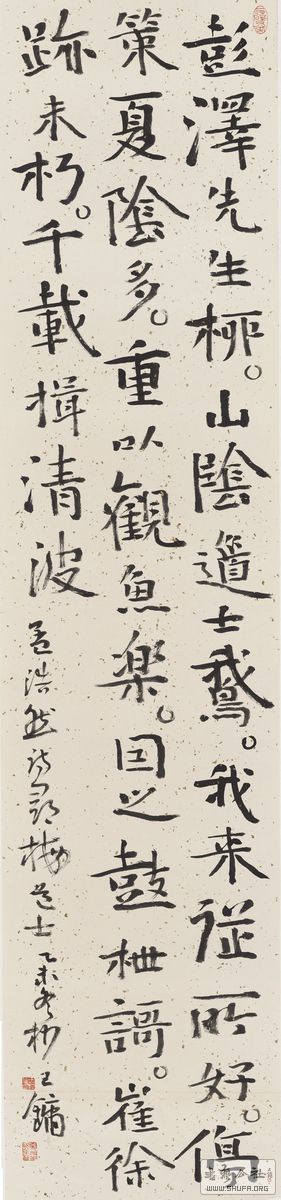 彭澤先生桺。山陰道士鵞。我来從所好。停
策夏陰多。重以観魚楽。囙之鼓枻謌。崔徐
跡未朽。千載揖清波
孟浩然詩尋梅道士 乙未冬抄 王鏞
WWW.SHUFA.ORG